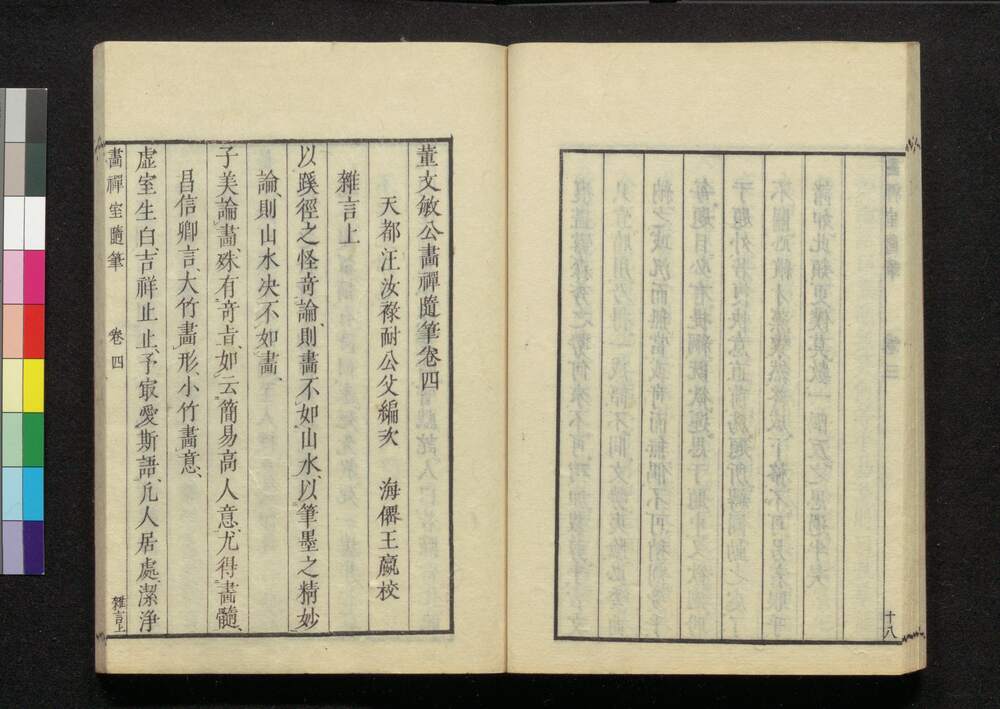 十八
董文敏公畫禪隨筆卷四
天都汪汝祿耐公父編次 海僊王嬴校
雜言上
以蹊徑之怪竒論、則畫不如山水、以筆墨之精妙
論、則山水决不如畫、
子美論畫、殊有竒旨、如云簡易高人意、尤得畫髓、
昌信卿言、大竹畫形、小竹畫意、
虛室生白、吉祥止止、予㝡愛斯語、凡人居處、潔淨
畫禪室隨筆 卷四 雜言上